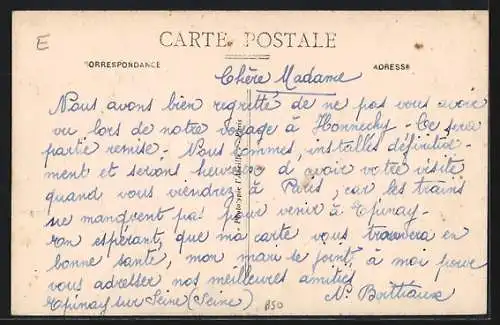 E
CARTE POSTALE
CORRESPONDANCE
ADRESSE
Chère Madame
Nous avons bien regretté de ne pas vous avoir
vu lors de notre voyage à Honnechy - Ce sera
partie remise. Nous sommes, installés définitive-
ment et serions heureux d'avoir votre visite
quand vous viendrez à Paris, car les trains
ne manquent pas pour venir à Epinay.
en espérant, que ma carte vous trouvera en
bonne santé, mon mari se joint à moi pour
vous adresser nos meilleures amitiés
Epinay sur Seine (Seine)
B50